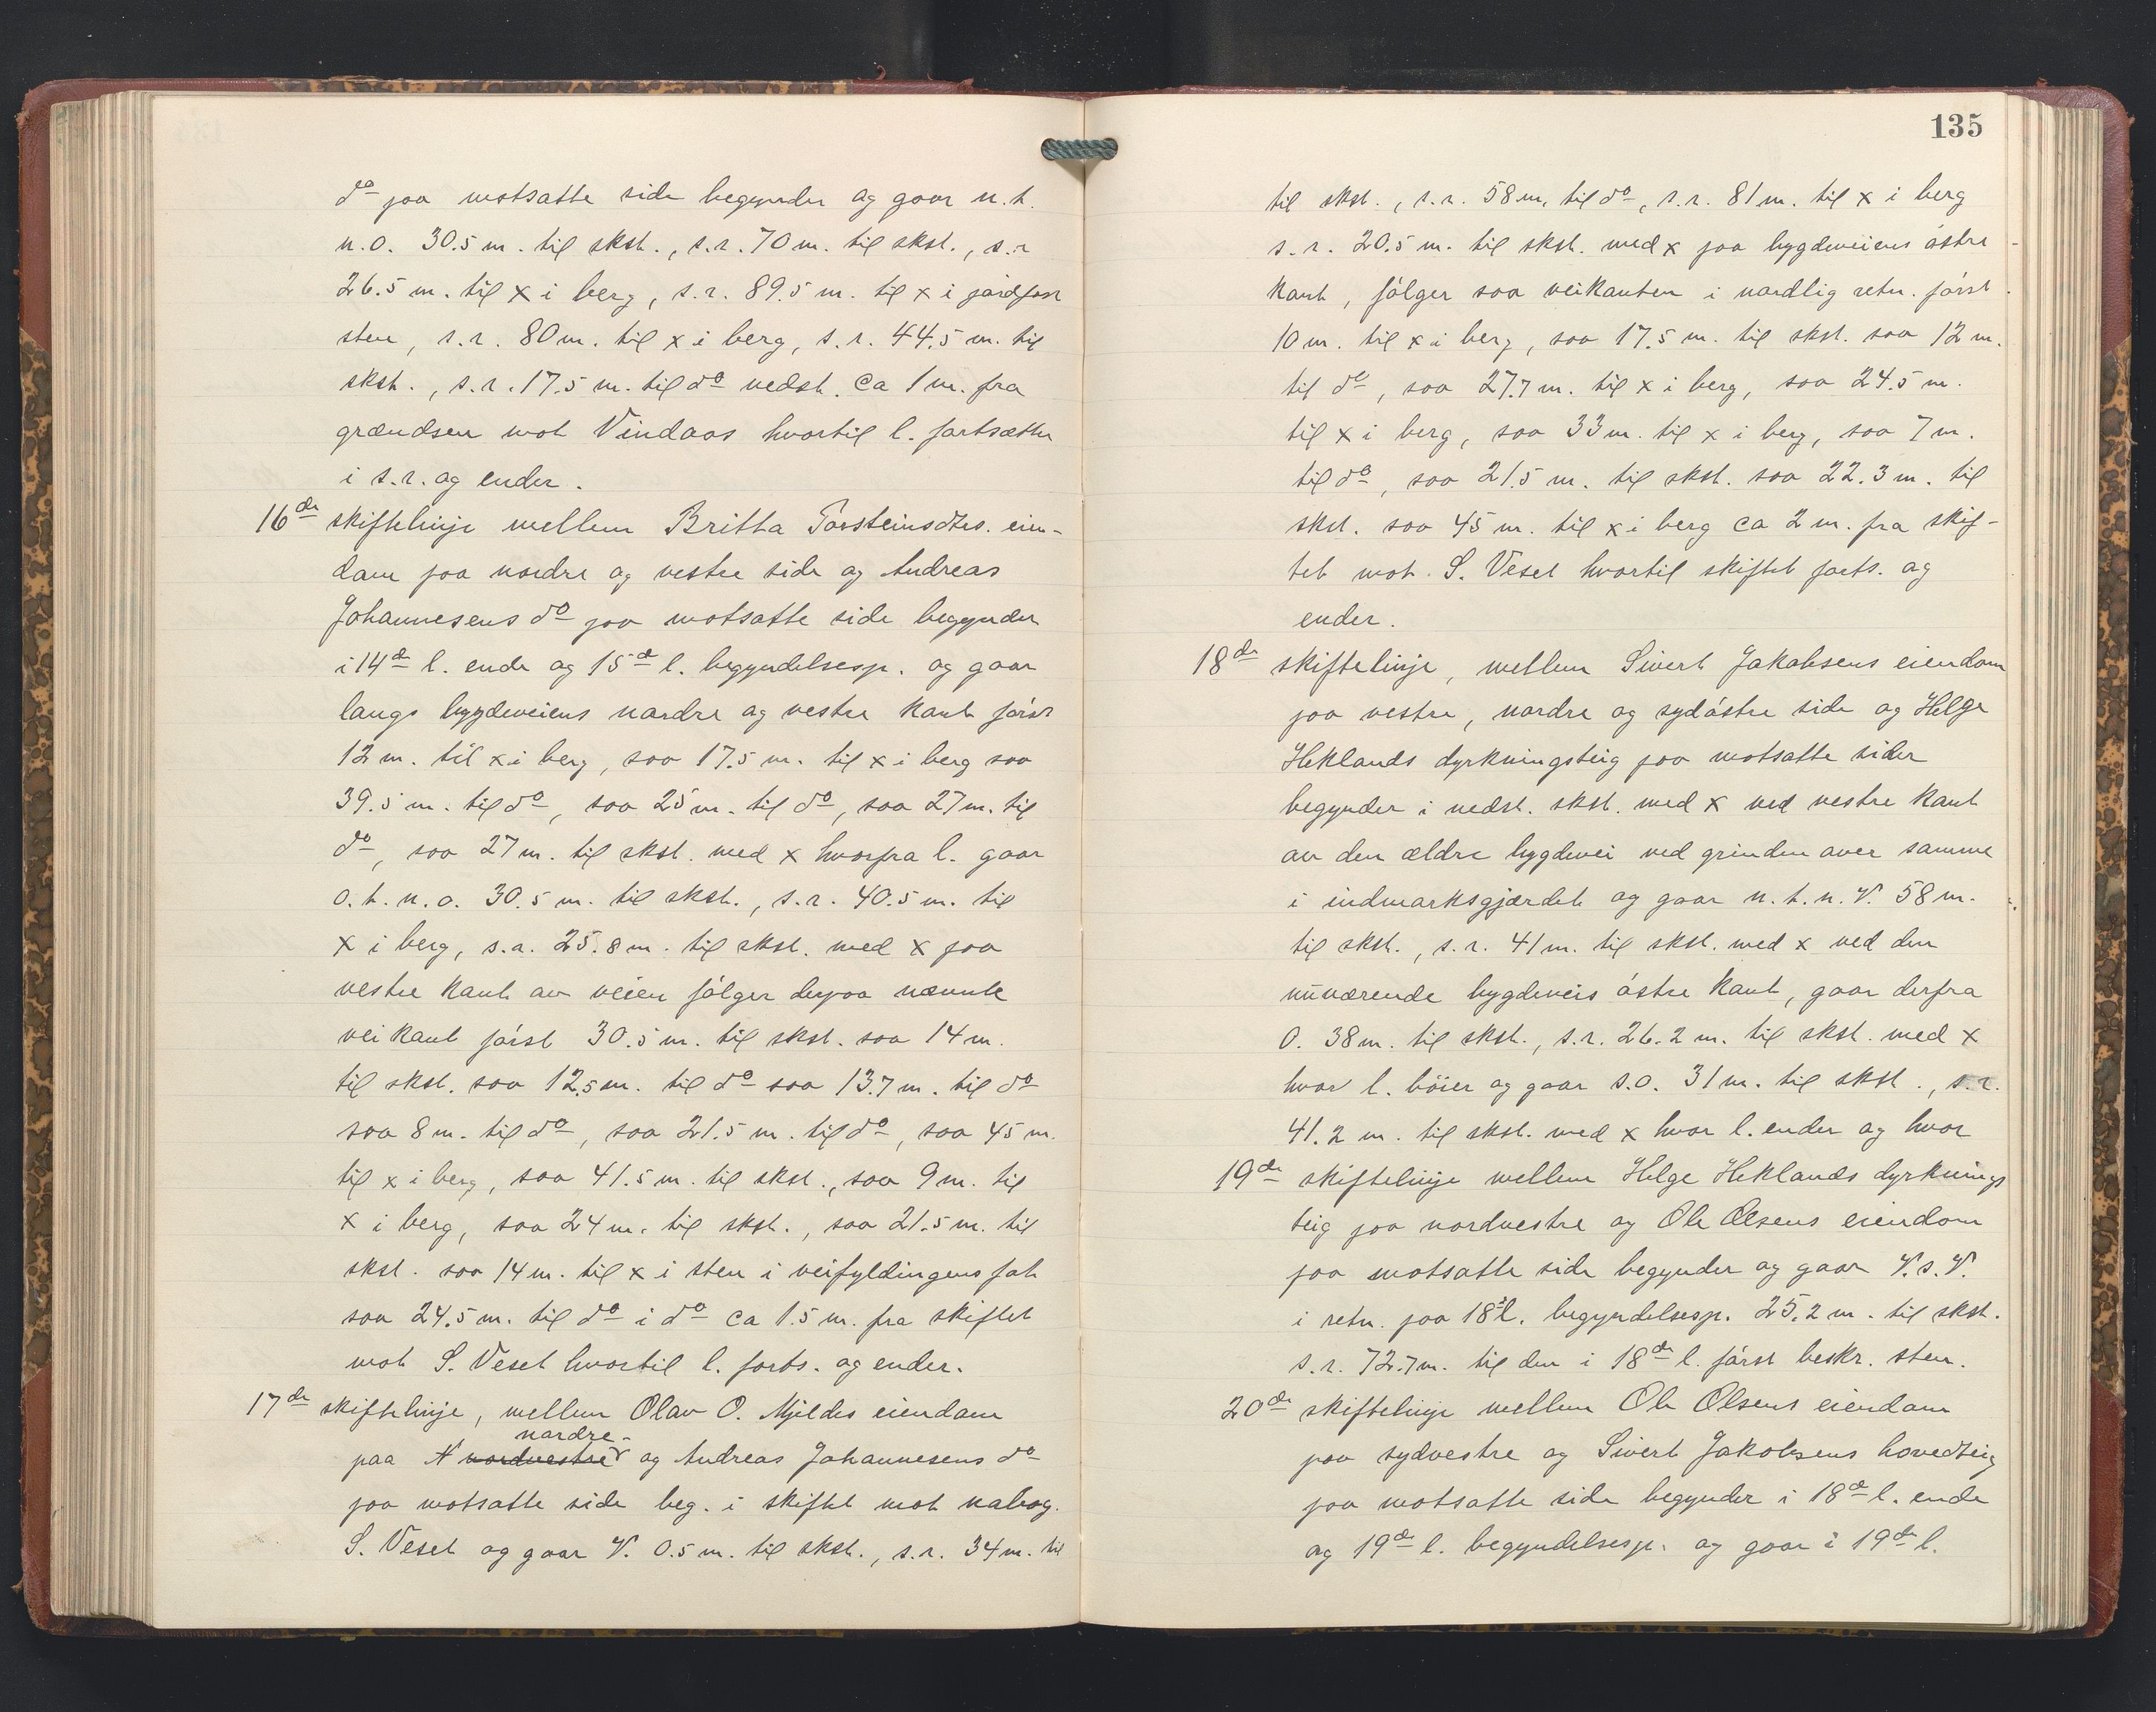 do paa motsatte side begynder og gaar n.t.
n.o. 30.5 m. til skst., s.r. 70 m. til skst., s.r
26.5 m. til x i berg, s.r. 89.5 m. til x i jordfast
sten, s.r. 80 m. til x i berg, s.r. 44.5 m. til
skst., s.r. 17.5 m. til do nedst. ca 1 m. fra
grændsen mot Vindaas hvortil l. fortsætter
i s.r. og ender.
16de skiftelinje mellem Britta Torsteinsdtrs. eien-
dom paa nordre og vestre side og Andreas
Johannesens do paa motsatte side begynder
i 14de l. ende og 15de l. begyndelsesp. og gaar
langs bygdeveiens nordre og vestre kant først
12 m. til x i berg, saa 17.5 m. til x i berg saa
39.5 m. til do, saa 25 m. til do, saa 27 m. til
do, saa 27 m. til skst. med x hvorfra l. gaar
o.t.n.o. 30.5 m. til skst., s.r. 40.5 m. til
x i berg, s.r. 25.8 m. til skst. med x paa
vestre kant av veien følger derpaa nævnte
veikant først 30.5 m. til skst. saa 14 m.
til skst. saa 12.5 m. til do saa 13.7 m. til do
saa 8 m. til do, saa 21.5 m. til do, saa 45 m.
til x i berg, saa 41.5 m. til skst., saa 9 m. til
x i berg, saa 24 m. til skst., saa 21.5 m. til
skst. saa 14 m. til x i sten i veifyldingens fot
saa 24.5 m. til do i do ca 1.5 m. fra skiftet
mot S. Veset hvortil l. forts. og ender.
17de skiftelinje, mellem Olav O. Mjeldes eiendom
nordre
paa N nordvestre og Andreas Johannesens do
paa motsatte side beg. i skiftet mot nabog.
S. Veset og gaar V. 0.5 m. til skst., s.r. 34 m. til
135
til skst., s.r. 58 m. til do, s.r. 81 m. til x i berg
s.r. 20.5 m. til skst. med x paa bygdeveiens østre
kant, følger saa veikanten i nordlig retn. først
10 m. til x i berg, saa 17.5 m. til skst. saa 12 m.
til do, saa 27.7 m. til x i berg, saa 24.5 m.
til x i berg, saa 33 m. til x i berg, saa 7 m.
til do, saa 21.5 m. til skst. saa 22.3 m. til
skst. saa 45 m. til x i berg ca 2 m. fra skif-
tet mot S. Veset hvortil skiftet forts. og
ender.
18de skiftelinje, mellem Sivert Jakobsens eiendom
paa vestre, nordre og sydøstre side og Helge
Heklands dyrkningsteig paa motsatte sider
begynder i nedst. skst. med x ved vestre kant
av den ældre bygdevei ved grinden over samme
i indmarksgjærdet og gaar n.t.n.V. 58 m.
til skst., s.r. 41 m. til skst. med x ved den
nuværende bygdeveis østre kant, gaar derfra
O. 38 m. til skst., s.r. 26.2 m. til skst. med x
hvor l. bøier og gaar s.o. 31 m. til skst., s.r.
41.2 m. til skst. med x hvor l. ender og hvor
19de skiftelinje mellem Helge Heklands dyrknings
teig paa nordvestre og Ole Olsens eiendom
paa motsatte side begynder og gaar V.s.V.
i retn. paa 18de l. begyndelsesp. 25.2 m. til skst.
s.r. 72.7 m. til den i 18de l. først beskr. sten.
20de skiftelinje mellem Ole Olsens eiendom
paa sydvestre og Sivert Jakobsens hovedteig
paa motsatte side begynder i 18de l. ende
og 19de l. begyndelsesp. og gaar i 19de l.